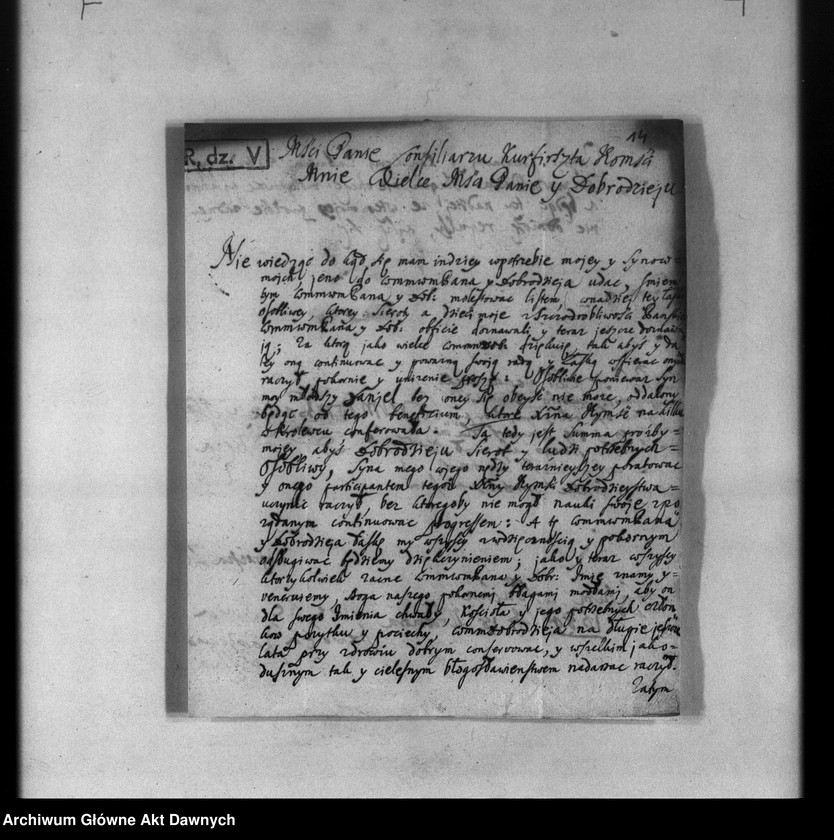 14
R. dz. V
Mści Panie Consiliarzu Kurfirszta JKomśći
Mnie Wielce Mśći Panie y Dobrodzieju
Nie wiedząc do kąd się mam indziey w potrzebie mojey y Synow
moich jeno do Wmmwm Pana y Dobrodzieja udać, śmiem
tym Wmmwm Pana y Dob: molestować listem, w nadziei tey łaski
osobliwey, ktorey Sieroty a dzieci moje z szczodrobliwości Pańskiey
Wmmwm Pana y Dob: obficie doznawali y teraz jeszcze doznawa-
ją; za ktorą jako wielce dziękuię, tak abyś y da
ley onę continuować y poważną swoją radę y łaskę
raczył pokornie y uniżenie proszę: Osobliwie ponieważ Syn
moy młodszy Daniel bez oney się obeyść nie może, oddalony
będąc od tego beneficium, ktore
w Krolewcu conferowała. Ta tedy jest Summa proźby
mojey abyś Dobrodzieju Sierot y ludzi potrzebnych
Osobliwy, Syna mego w jego nędzy teraznieyszey poratować
y onego participantem tegoż Dobrodzieystwa
uczynić raczył, bez ktoregoby nie mogł nauki swoje z po
żądanym continuować progressem: A tę Wmmwm Pana
y Dobrodzieja łaskę my wszyscy z wdzięcznością y pokornym
odsługiwać będziemy dziękczynieniem; jako y teraz wszyscy
ktorzykolwiek zacne Wmmwm Pana y Dob: Imię znamy y
venerujemy, Boga naszego pokornemi błagami modłami, aby on
dla swego Imienia chwały, Kościoła y jego potrzebnych człon
kow pożytku y pociechy, Wmm Dobrodzieja na długie jeszcze
lata przy zdrowiu dobrym conservować, y wszelkim jako
dusznym tak y cielesnym błogosławieństwem nadarzać raczył.
Zatym
Archiwum Główne Akt Dawnych